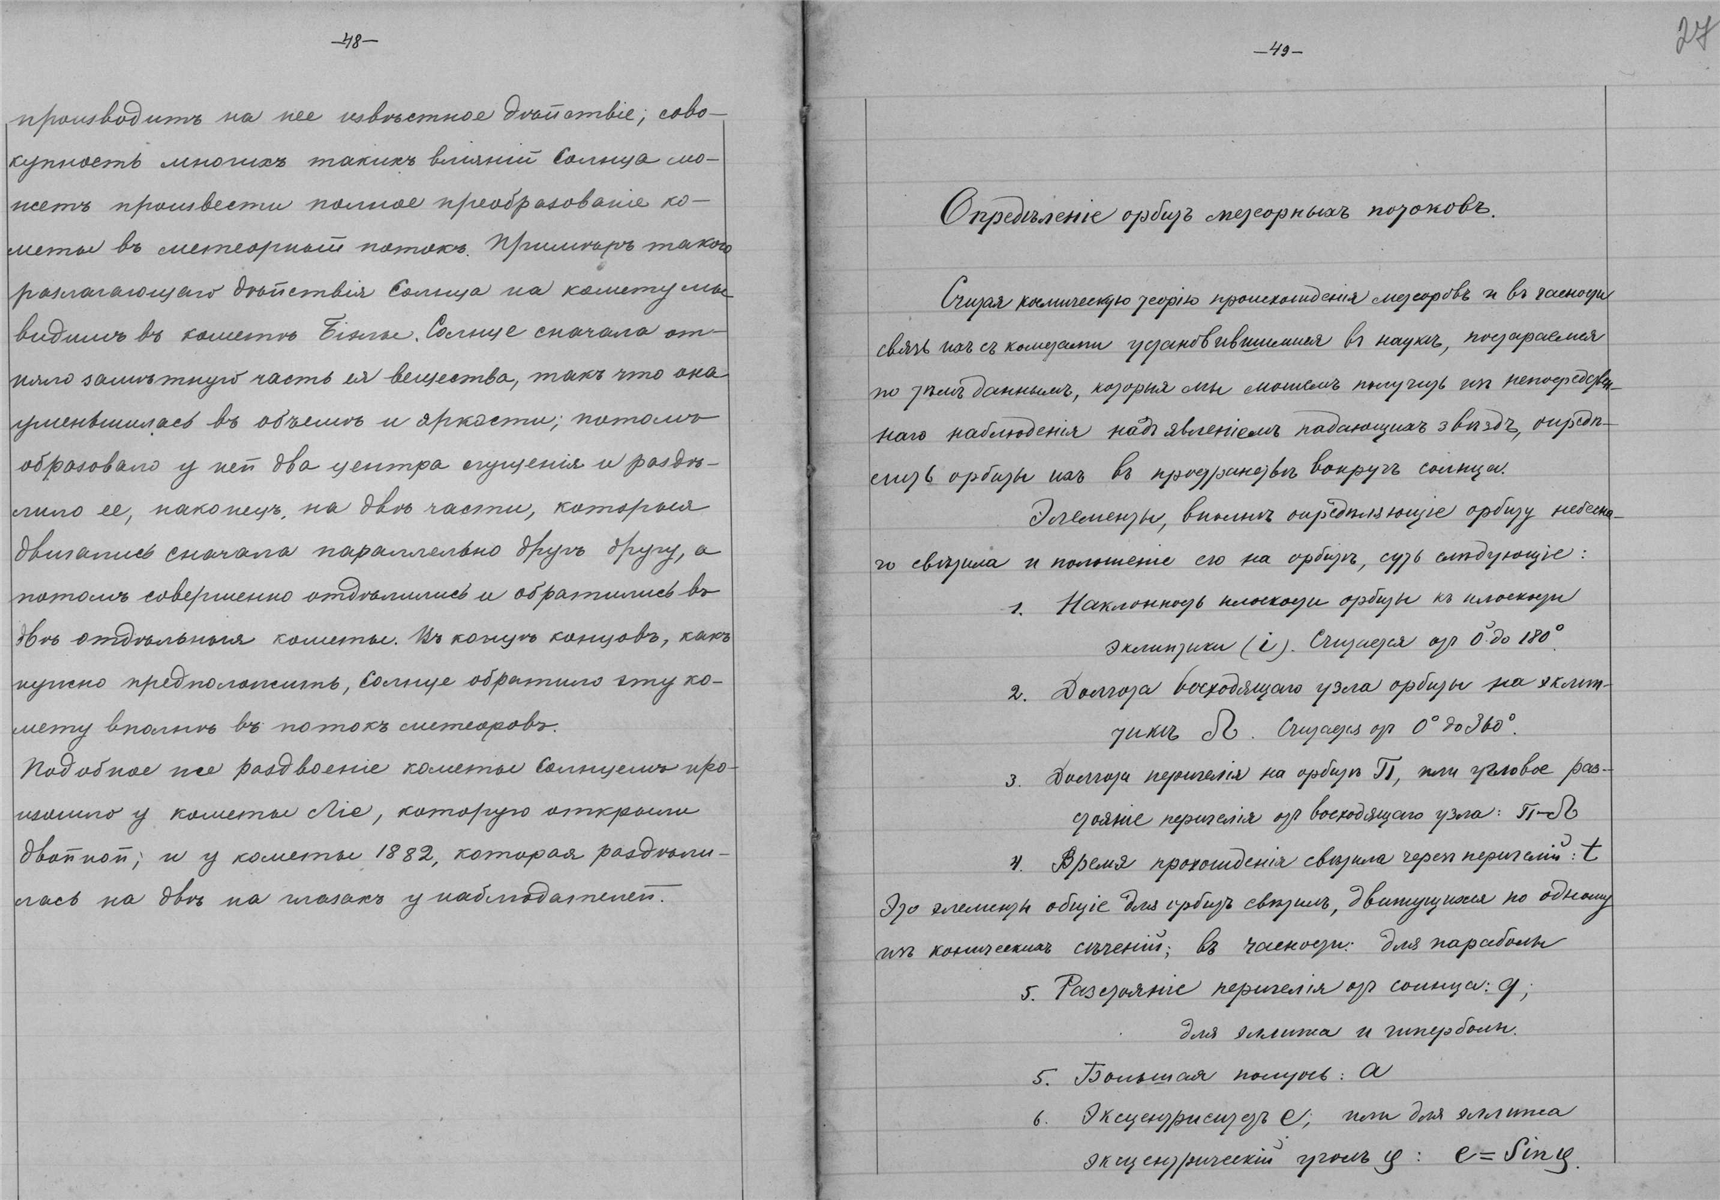 —48—
производитъ на нее извѣстное дѣйствіе; сово-
купность многихъ такихъ вліяній Солнца мо-
жетъ произвести полное преобразованіе ко-
меты въ метеорный потокъ. Примѣръ такого
разлагающаго дѣйствія Солнца на комету мы
видимъ въ кометѣ Біэлы. Солнце сначала от-
няло замѣтную часть ея вещества, такъ что она
уменьшилась въ объемѣ и яркости; потомъ
образовало у ней два центра сгущенія и раздѣ-
лило ее, наконецъ, на двѣ части, которыя
двигались сначала параллельно другъ другу, а
потомъ совершенно отдѣлились и обратились въ
двѣ отдѣльныя кометы. Въ концѣ концовъ, какъ
нужно предположить, Солнце обратило эту ко-
мету вполнѣ въ потокъ метеоровъ.
Подобное же раздвоеніе кометы Солнцемъ про-
изошло у кометы Ліе, которую открыли
двойной; и у кометы 1882, которая раздѣли-
лась на двѣ на глазахъ у наблюдателей.
27
—49—
Опредѣленіе орбитъ метеорныхъ потоковъ.
Считая космическую теорію происхожденія метеоровъ и въ часности
связь ихъ съ кометами установившимися въ наукѣ, постараемся
по тѣмъ даннымъ, которыя мы можемъ получить изъ непосредствен-
наго наблюденія надъ явленіемъ падающихъ звѣздъ, опредѣ-
лить орбиты ихъ въ пространствѣ вокругъ солнца.
Элементы, вполнѣ опредѣляющіе орбиту небесна-
го свѣтила и положеніе его на орбитѣ, суть слѣдующіе:
1. Наклонность плоскости орбиты къ плоскости
эклиптики (i). Считается отъ 0° до 180°.
2. Долгота восходящаго узла орбиты на эклип-
тикѣ ☊. Считается отъ 0° до 360°.
3. Долгота перигелія на орбитѣ П, или угловое раз-
стояніе перигелія отъ восходящаго узла: П-☊
4. Время прохожденія свѣтила черезъ перигелій: t
Это элементы общіе для орбитъ свѣтилъ, движущихся по одному
изъ коническихъ сѣченій; въ часности: для параболы
5. Разстояніе перигелія отъ солнца: q;
для эллипса и гиперболы.
5. Большая полуось: a
6. Эксцентриситетъ e; или для эллипса
эксцентрическій уголъ φ: e = Sin φ.